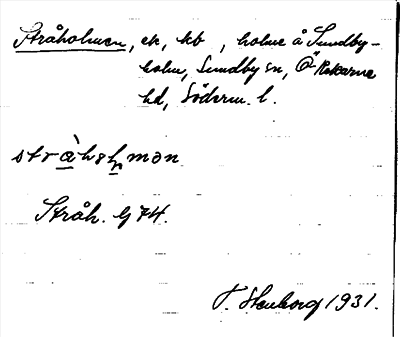 Stråholmen, ek, kb, holme å Sundby-
holm, Sundby sn, Ö Rekarne
hd, Söderm. l.
stràhɷḷmən
Stråh. G 74.
T. Stenborg 1931.